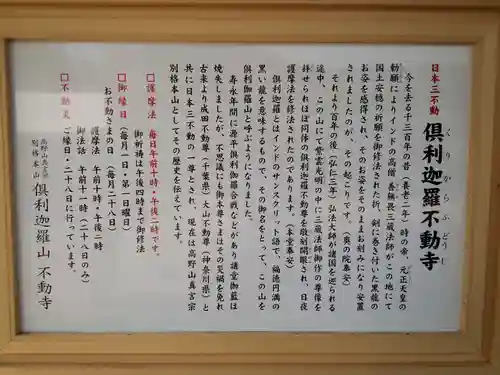 日本三不動
倶利迦羅不動寺
くりからふどうじ
今を去る千三百年の昔(養老二年)時の帝、元正天皇の
勅願によりインドの高僧 善無畏三蔵法師がこの地にて
国土安穏の祈願を御修法された折、剣に巻き付いた黒龍の
お姿を感得され、そのお姿をそのままお刻みになり安置
されましたのが、その起こりです。(奥の院奉安)
それより百年の後(弘仁三年)弘法大師が諸国を巡られる
途中、この山にて紫雲光明の中に三蔵法師御作の尊像を
拝せられほぼ同体の倶利迦羅不動尊を敬刻開眼され、日夜
護摩法を修法されたのであります。(本堂奉安)
倶利迦羅とはインドのサンスクリット語で、福徳円満の
黒い龍を意味するもので、その御名をとって、この山を
倶利伽羅山と呼ぶようになりました。
寿永年間に源平倶利伽羅合戦などがあり諸堂伽藍は
焼失しましたが、不思議にも御本尊さまはその災禍を免れ
古来より成田不動尊(千葉県)大山不動尊(神奈川県)と
共に日本三不動の一尊とされ、現在は高野山真言宗
別格本山としてその歴史を伝えています。
□護摩法 毎日午前十時・午後二時です。
御祈祷は午後四時まで御修法
□御縁日(毎月一日・第一日曜日)
お不動さまの日(毎月二十八日)
護摩法 午前十時・午後二時
御法話 午前十一時(二十八日のみ)
□不動 ご縁日・二十八日に行っています。
高野山真言宗
別格本山
倶利迦羅山 不動寺